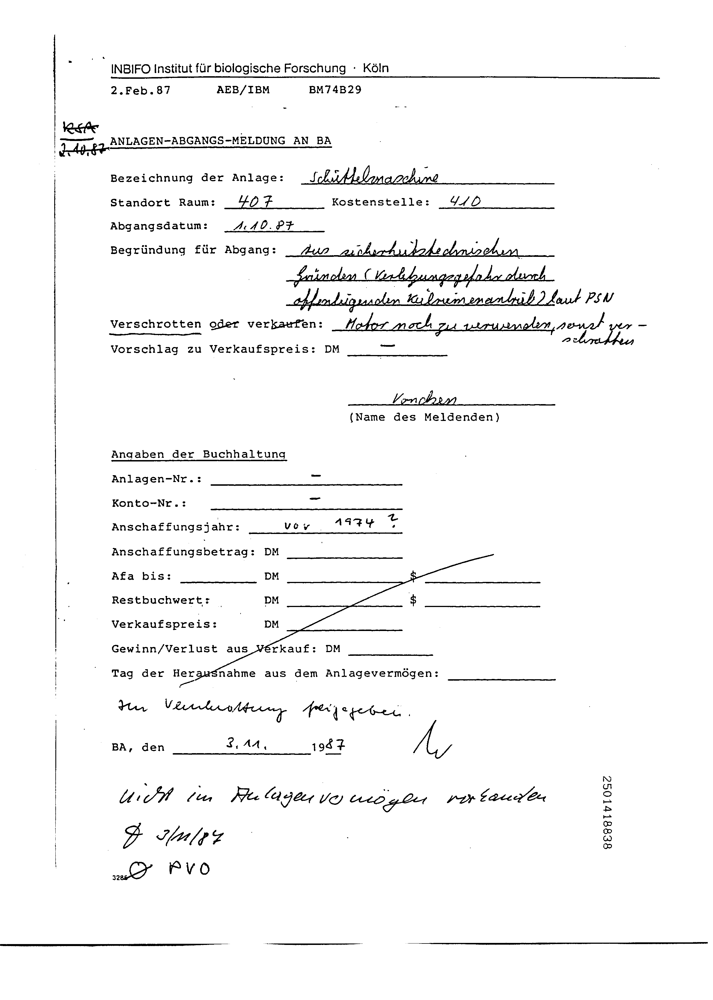 INBIFO Institut für biologische Forschung · Köln
2.Feb.87 AEB/IBM BM74B29
2.10.87
ANLAGEN-ABGANGS-MELDUNG AN BA
Bezeichnung der Anlage: Schüttelmaschine
Standort Raum: 407 Kostenstelle: 410
Abgangsdatum: 1.10.87
Begründung für Abgang: Aus sicherheitstechnischen
Gründen (Verletzungsgefahr durch
offenliegenden Keilriemenantrieb) laut PSN
Verschrotten oder verkaufen: Motor noch zu verwenden, sonst ver-
schrotten
Vorschlag zu Verkaufspreis: DM –
(Name des Meldenden)
Angaben der Buchhaltung
Anlagen-Nr.: –
Konto-Nr.: –
Anschaffungsjahr: vor 1974 ?
Anschaffungsbetrag: DM
Afa bis: DM $
Restbuchwert: DM $
Verkaufspreis: DM
Gewinn/Verlust aus Verkauf: DM
Tag der Herausnahme aus dem Anlagevermögen:
Zur Verschrottung freigegeben.
BA, den 3.11. 1987
nicht im Anlagenvermögen vorhanden
3/11/87
PVO
2501418838